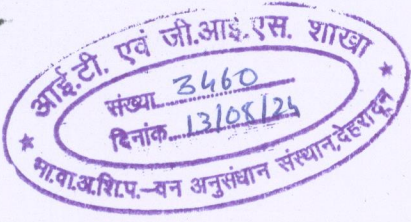 आई.टी. एवं जी.आइ.एस. शाखा
संख्या 3460
दिनांक 13/08/24
भा.वा.अ.शि.प.-वन अनुसंधान संस्थान, देहरादून